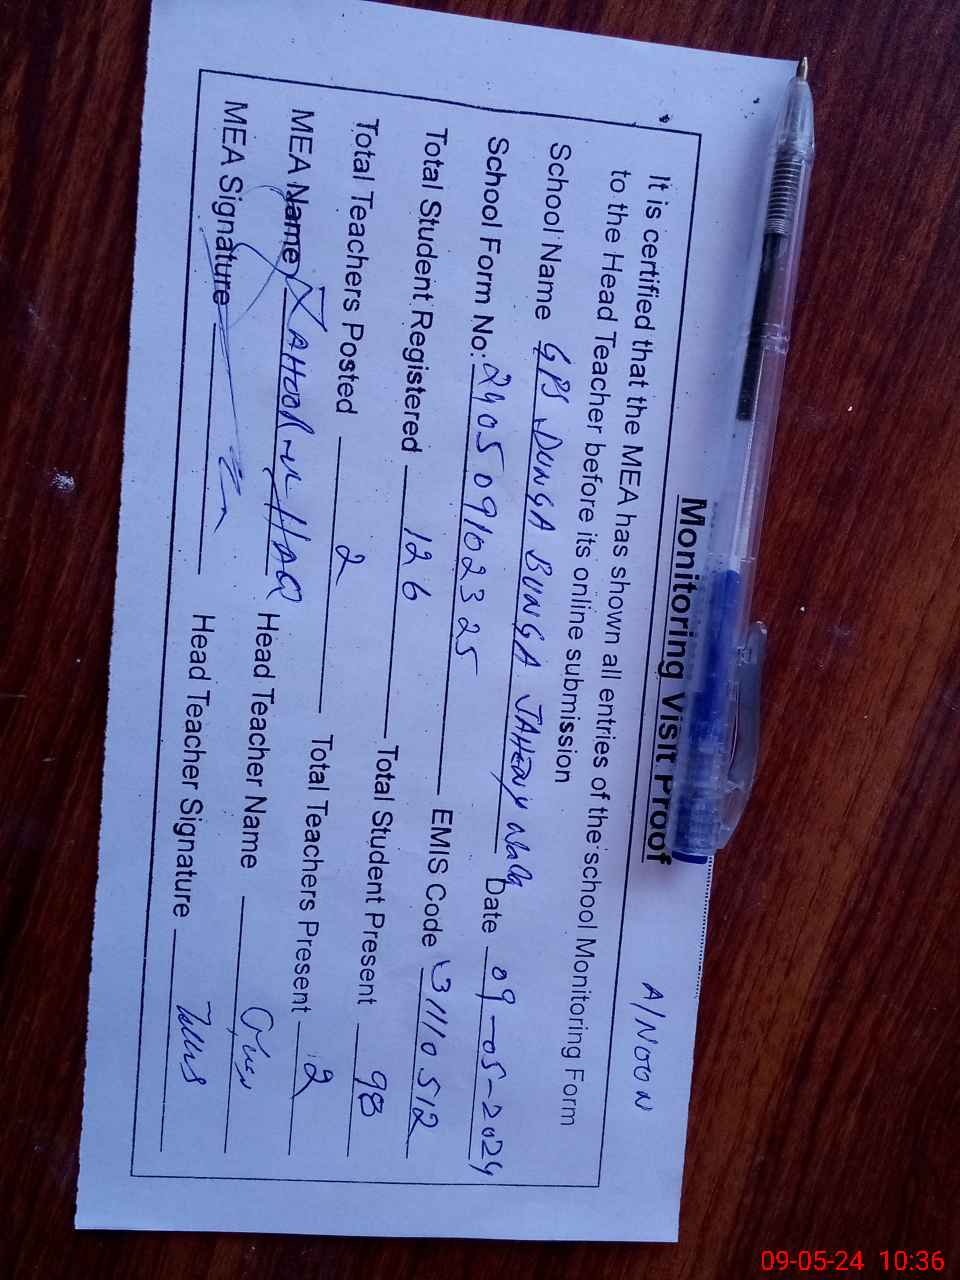 Monitoring Visit Proof
A/NOON
It is certified that the MEA has shown all entries of the school Monitoring Form
to the Head Teacher before its online submission
School Name GPS DUNGA BUNGA JAHENY Wala Date 09-05-2024
School Form No: 240509102325 EMIS Code 31110512
Total Student Registered 126 Total Student Present 98
Total Teachers Posted 2 Total Teachers Present 2
MEA Name ZAHOOR-ul-HAQ Head Teacher Name
MEA Signature Head Teacher Signature
09-05-24 10:36